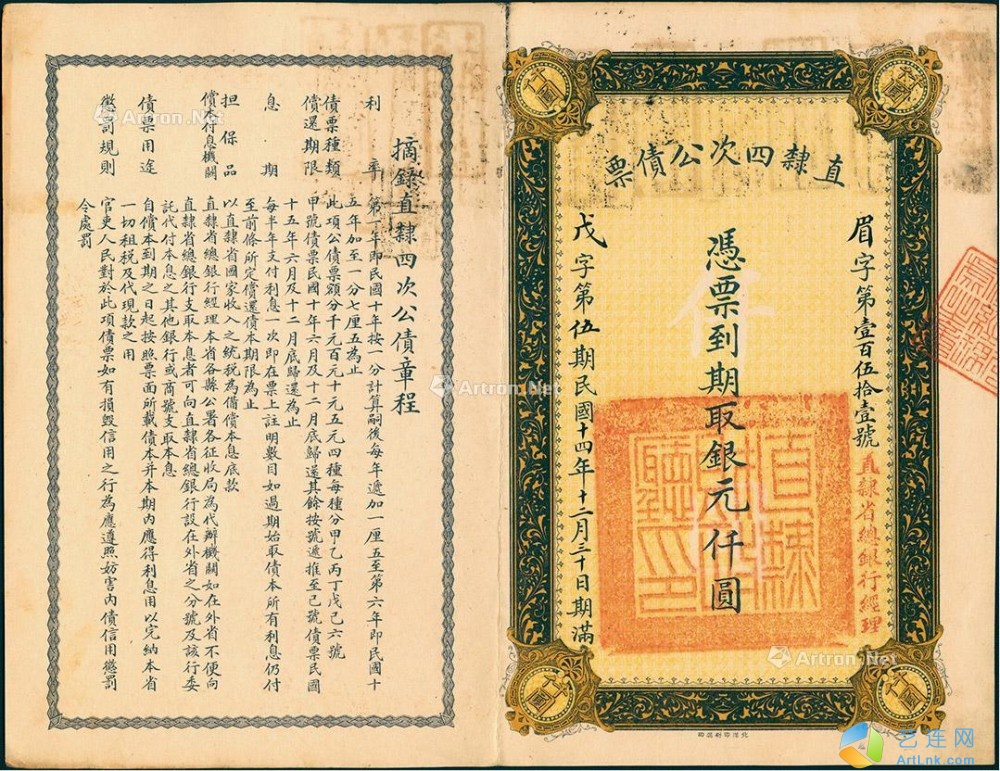 直隸四次公債票
眉字第壹百伍拾壹號
直隸省總銀行經理
憑票到期取銀元仟圓
戊字第伍期民國十四年十二月三十日期滿
仟圓
千圓
千圓
仟圓
直隸財政廳印
摘錄直隸四次公債章程
利率 第一年即民國十年按一分計算嗣後每年遞加一厘五至第六年即民國十
五年加至一分七厘五為止
債票種類 此項公債票額分千元百元十元五元四種每種分甲乙丙丁戊己六號
償還期限 甲號債票民國十年六月及十二月底歸還其餘按號遞推至己號債票民國
十五年六月及十二月底歸還為止
息期 每半年支付利息一次即在票上註明數目如過期始取債本所有利息仍付
至前條所定償還債本期限為止
担保品 以直隸省國家收入之統税為備償本息底款
償本付息機關 直隸省總銀行經理本省各縣公署各征收局為代辦機關如在外省不便向
直隸省總銀行支取本息者可向直隸省總銀行設在外省之分號及該行委
託代付本息之其他銀行或商號支取本息
債票用途 自償本到期之日起按照票面所載債本并本期內應得利息用以完納本省
一切租税及代現款之用
懲罰規則 官吏人民對於此項債票如有損毀信用之行為應遵照妨害內債信用懲罰
令處罰
Artron.Net
Artron.Net
Artron.Net
Artron.Net
艺连网
ArtLnk.com